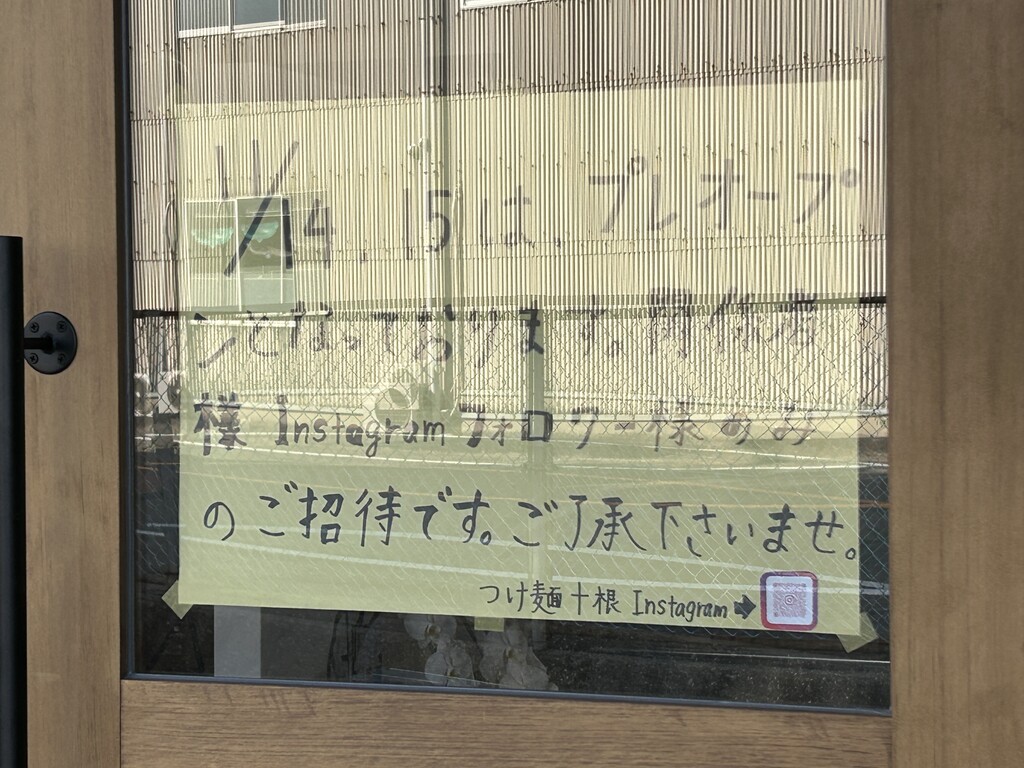 11/14、15は、プレオープ
ンとなっております。関係者
様 Instagram フォロワー様のみ
のご招待です。ご了承下さいませ。
つけ麺 十根 Instagram➡